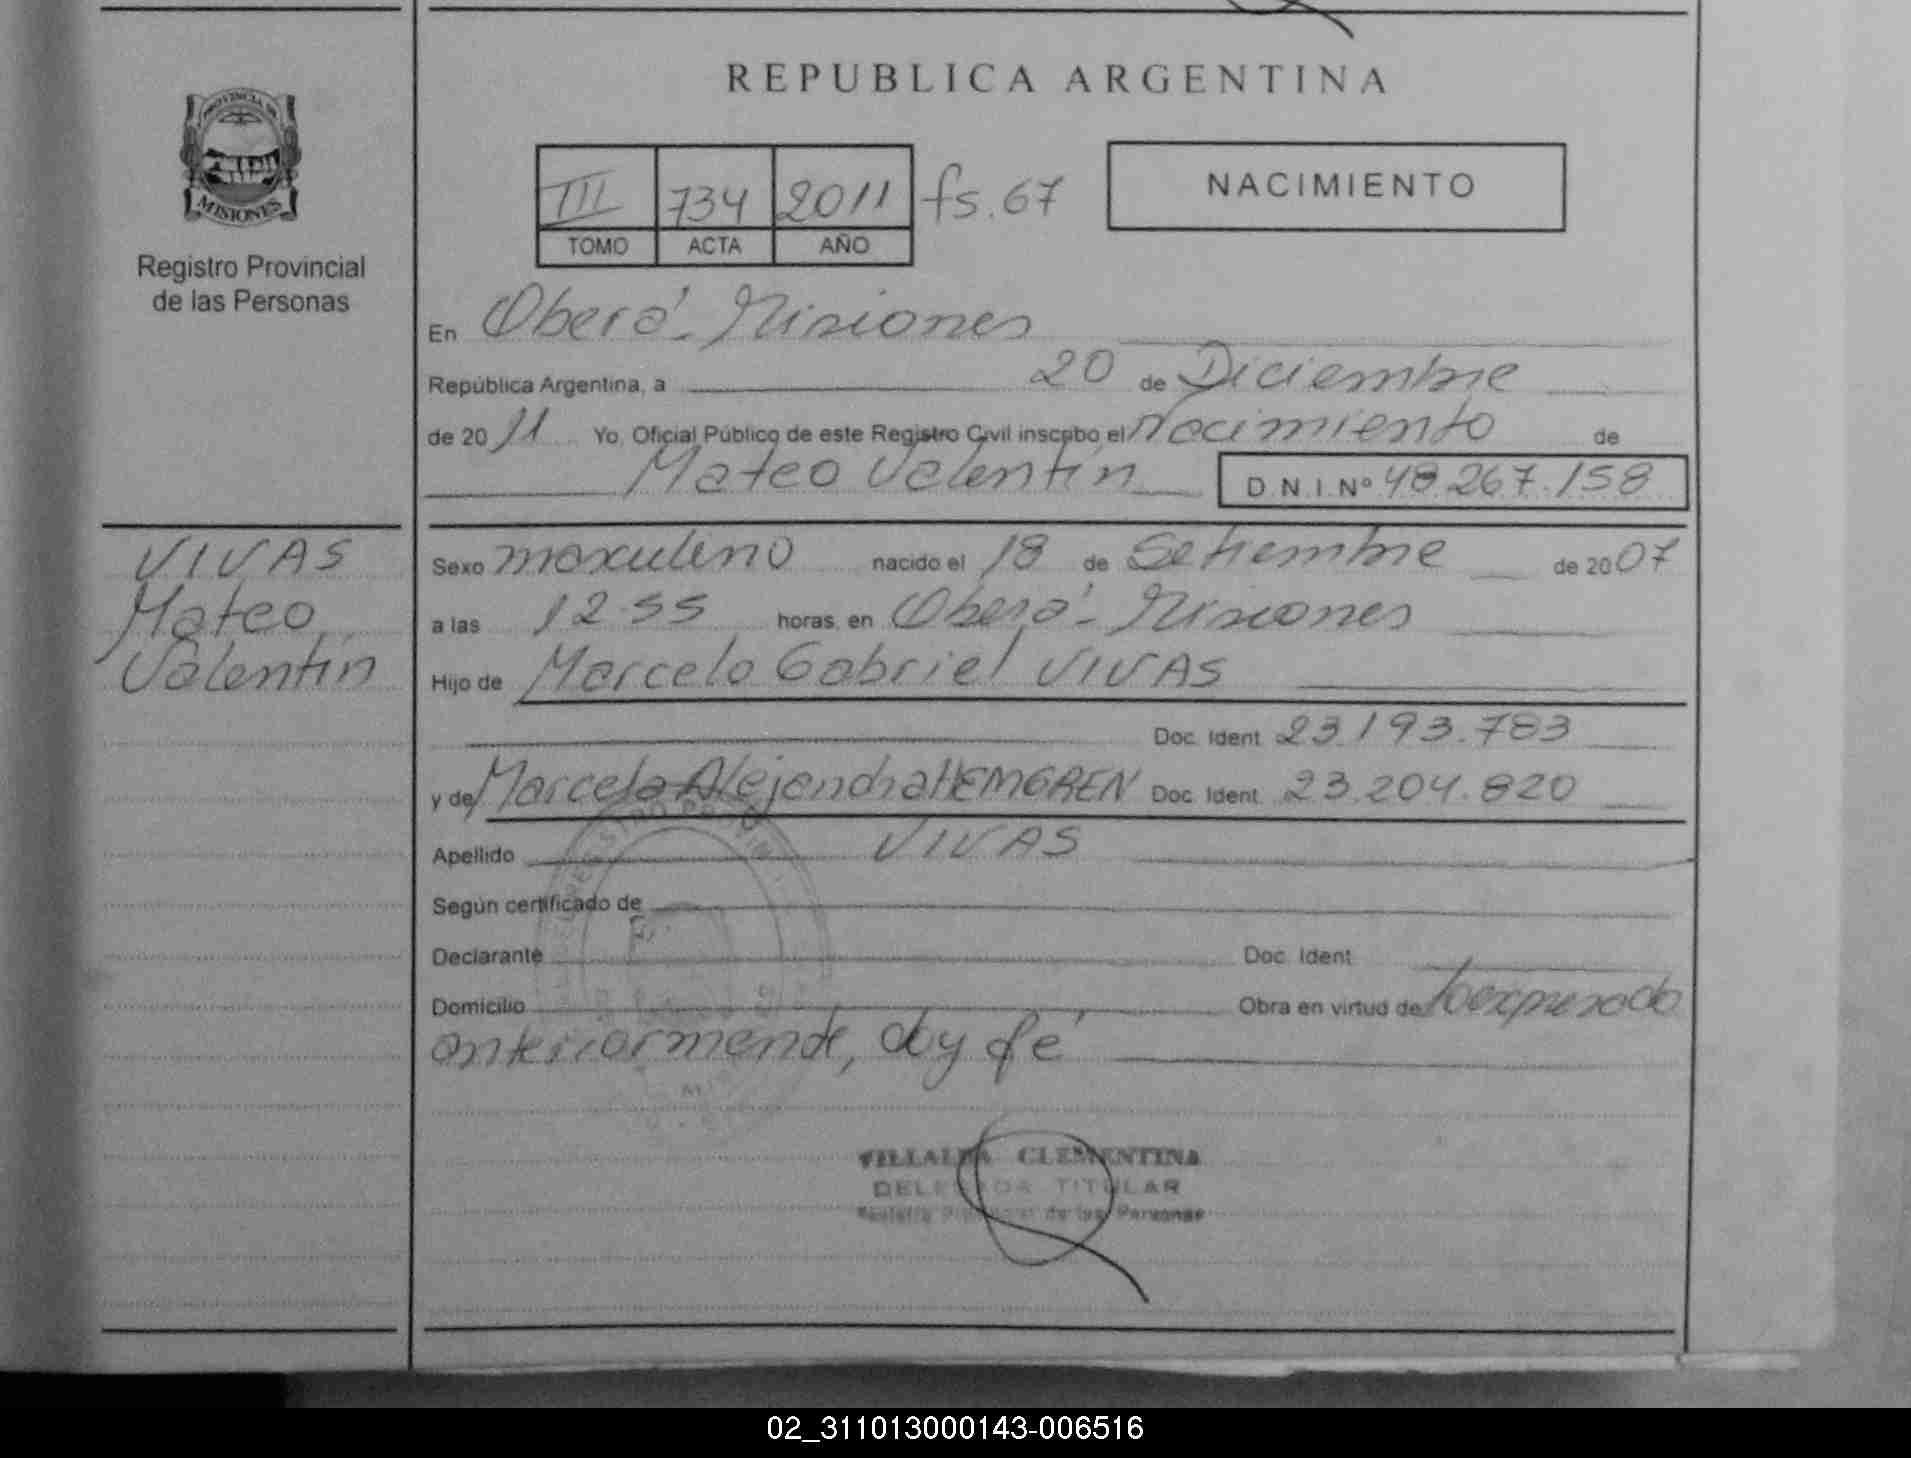 REPUBLICA ARGENTINA
PROVINCIA DE
MISIONES
Registro Provincial
de las Personas
III 734 2011 fs. 67
TOMO ACTA AÑO
NACIMIENTO
En Oberá - Misiones
República Argentina, a 20 de Diciembre
de 20 11 Yo, Oficial Público de este Registro Civil inscribo el Nacimiento de
Mateo Valentín D.N.I. Nº 48.267.158
VIVAS
Mateo
Valentín
Sexo masculino nacido el 18 de Setiembre de 20 07
a las 12.55 horas, en Oberá - Misiones
Hijo de Marcelo Gabriel VIVAS
Doc. Ident. 23.193.783
y de Marcela Alejandra HEMGREN Doc. Ident. 23.204.820
Apellido VIVAS
Según certificado de
Declarante Doc. Ident.
Domicilio Obra en virtud de lo expresado
anteriormente, doy fé
VILLALBA CLEMENTINA
DELEGADA TITULAR
Registro Provincial de las Personas
02_311013000143-006516